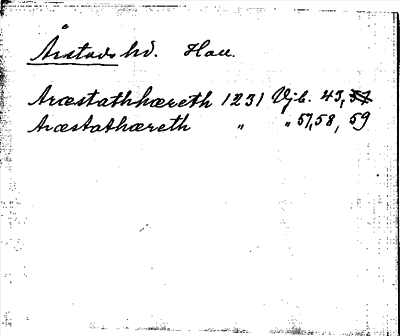 Årstads hd. Hall.
Aræstathhæreth 1231 Vjb. 43, 57
Aræstathæreth " " 57, 58, 59